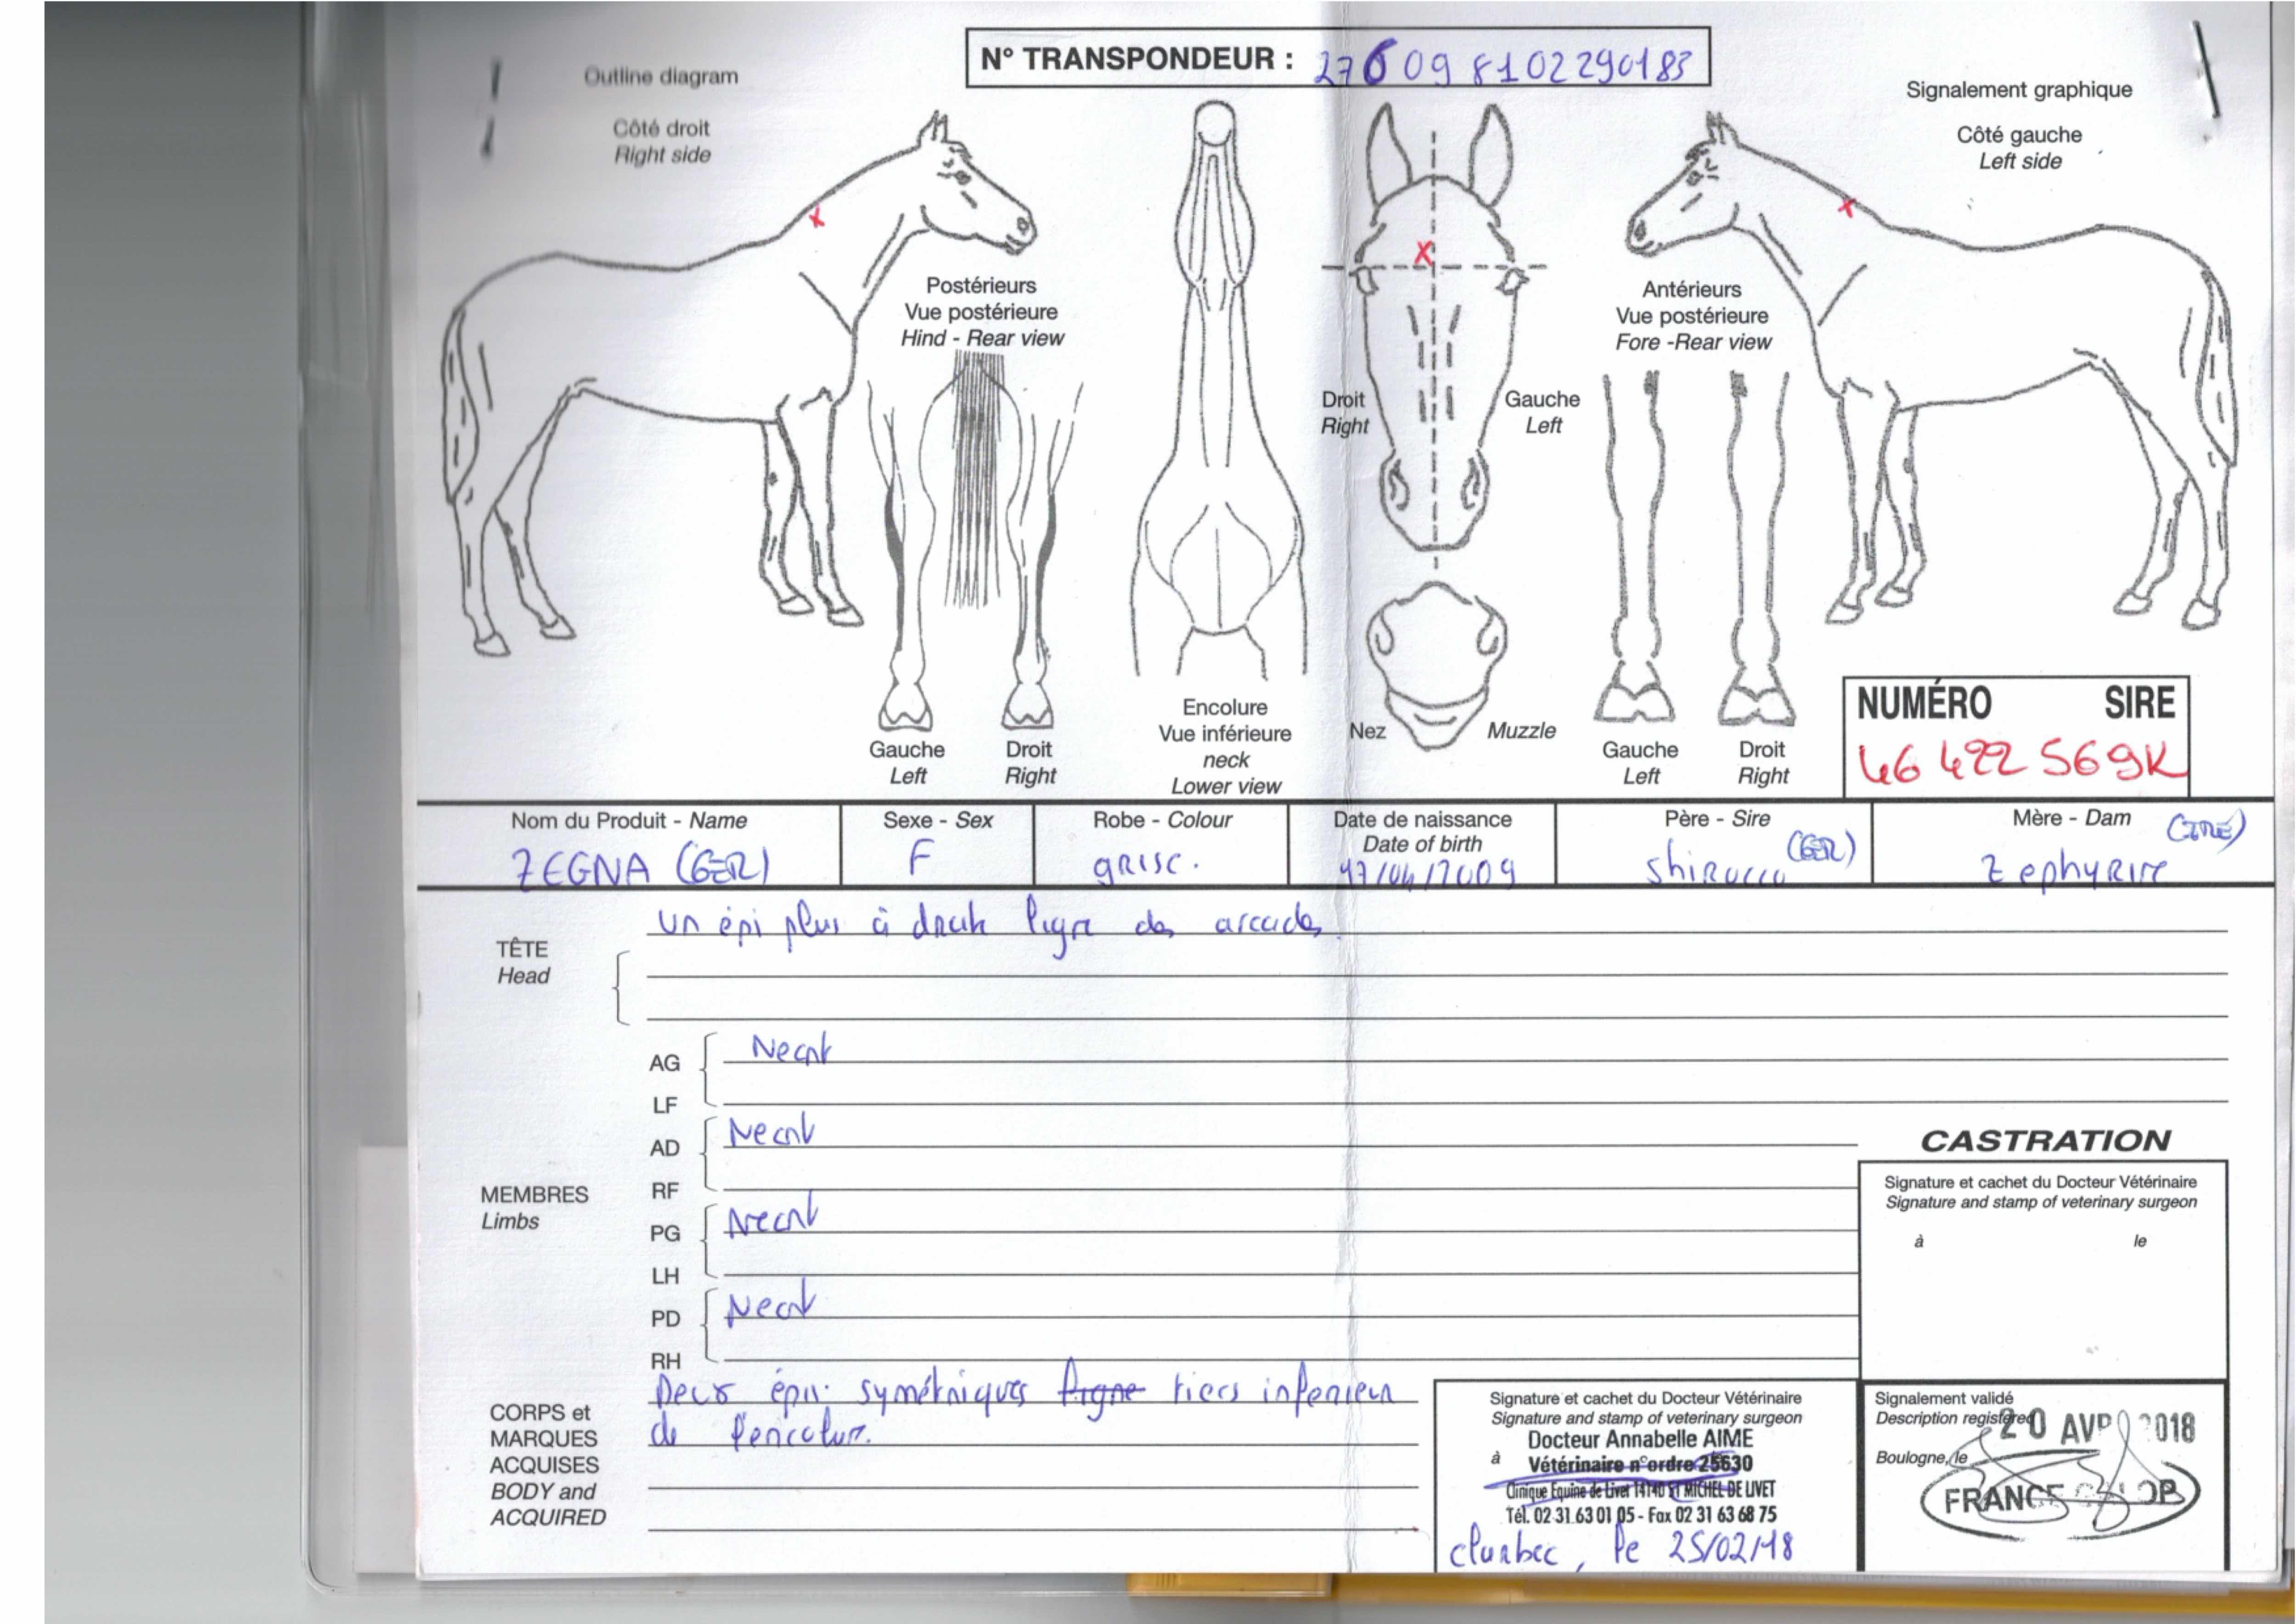 N° TRANSPONDEUR : 276098102290183
Outline diagram
Côté droit
Right side
Signalement graphique
Côté gauche
Left side
Postérieurs
Vue postérieure
Hind - Rear view
Antérieurs
Vue postérieure
Fore -Rear view
Droit
Right
Gauche
Left
Gauche
Left
Droit
Right
Encolure
Vue inférieure
neck
Lower view
Nez
Muzzle
Gauche
Left
Droit
Right
NUMÉRO SIRE
46 422 569K
Nom du Produit - Name
ZEGNA (GER)
Sexe - Sex
F
Robe - Colour
grise.
Date de naissance
Date of birth
17/04/2009
Père - Sire
Shirocco (GER)
Mère - Dam
Zephyrine (IRE)
TÊTE
Head
un épi plus à droite ligne des arcades.
MEMBRES
Limbs
AG
LF
Neant
AD
RF
Neant
PG
LH
Neant
PD
RH
Neant
CORPS et
MARQUES
ACQUISES
BODY and
ACQUIRED
Deux épis symétriques ligne tiers inferieur
de l'encolure.
CASTRATION
Signature et cachet du Docteur Vétérinaire
Signature and stamp of veterinary surgeon
à le
Signature et cachet du Docteur Vétérinaire
Signature and stamp of veterinary surgeon
Docteur Annabelle AIME
à Vétérinaire n°ordre 25630
Clinique Equine de Livet 14140 ST MICHEL DE LIVET
Tél. 02 31 63 01 05 - Fax 02 31 63 68 75
, le 25/02/18
Signalement validé
Description registered
20 AVR 2018
Boulogne, le
FRANCE GALOP